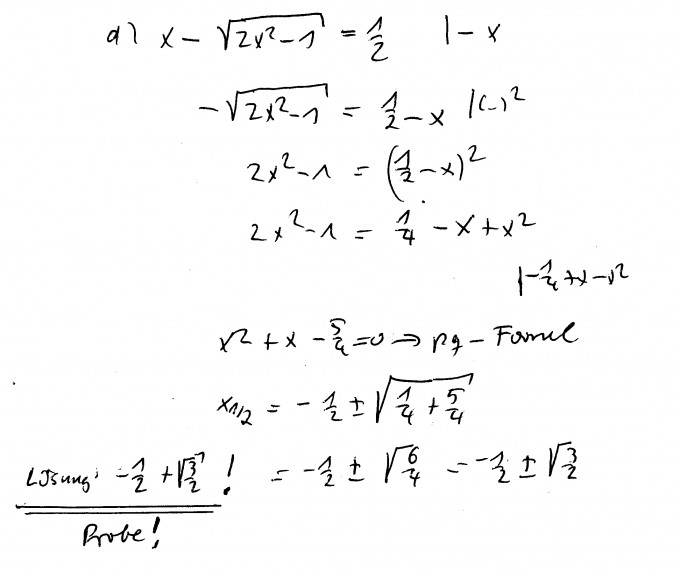 d) x − √(2x² − 1) = 1/2 | − x
− √(2x² − 1) = 1/2 − x | (−)²
2x² − 1 = (1/2 − x)²
2x² − 1 = 1/4 − x + x²
| − 1/4 + x − x²
x² + x − 5/4 = 0 ⇒ pq − Formel
x₁/₂ = − 1/2 ± √(1/4 + 5/4)
Lösung: − 1/2 + √(3/2) ! = − 1/2 ± √(6/4) = − 1/2 ± √(3/2)
Probe!